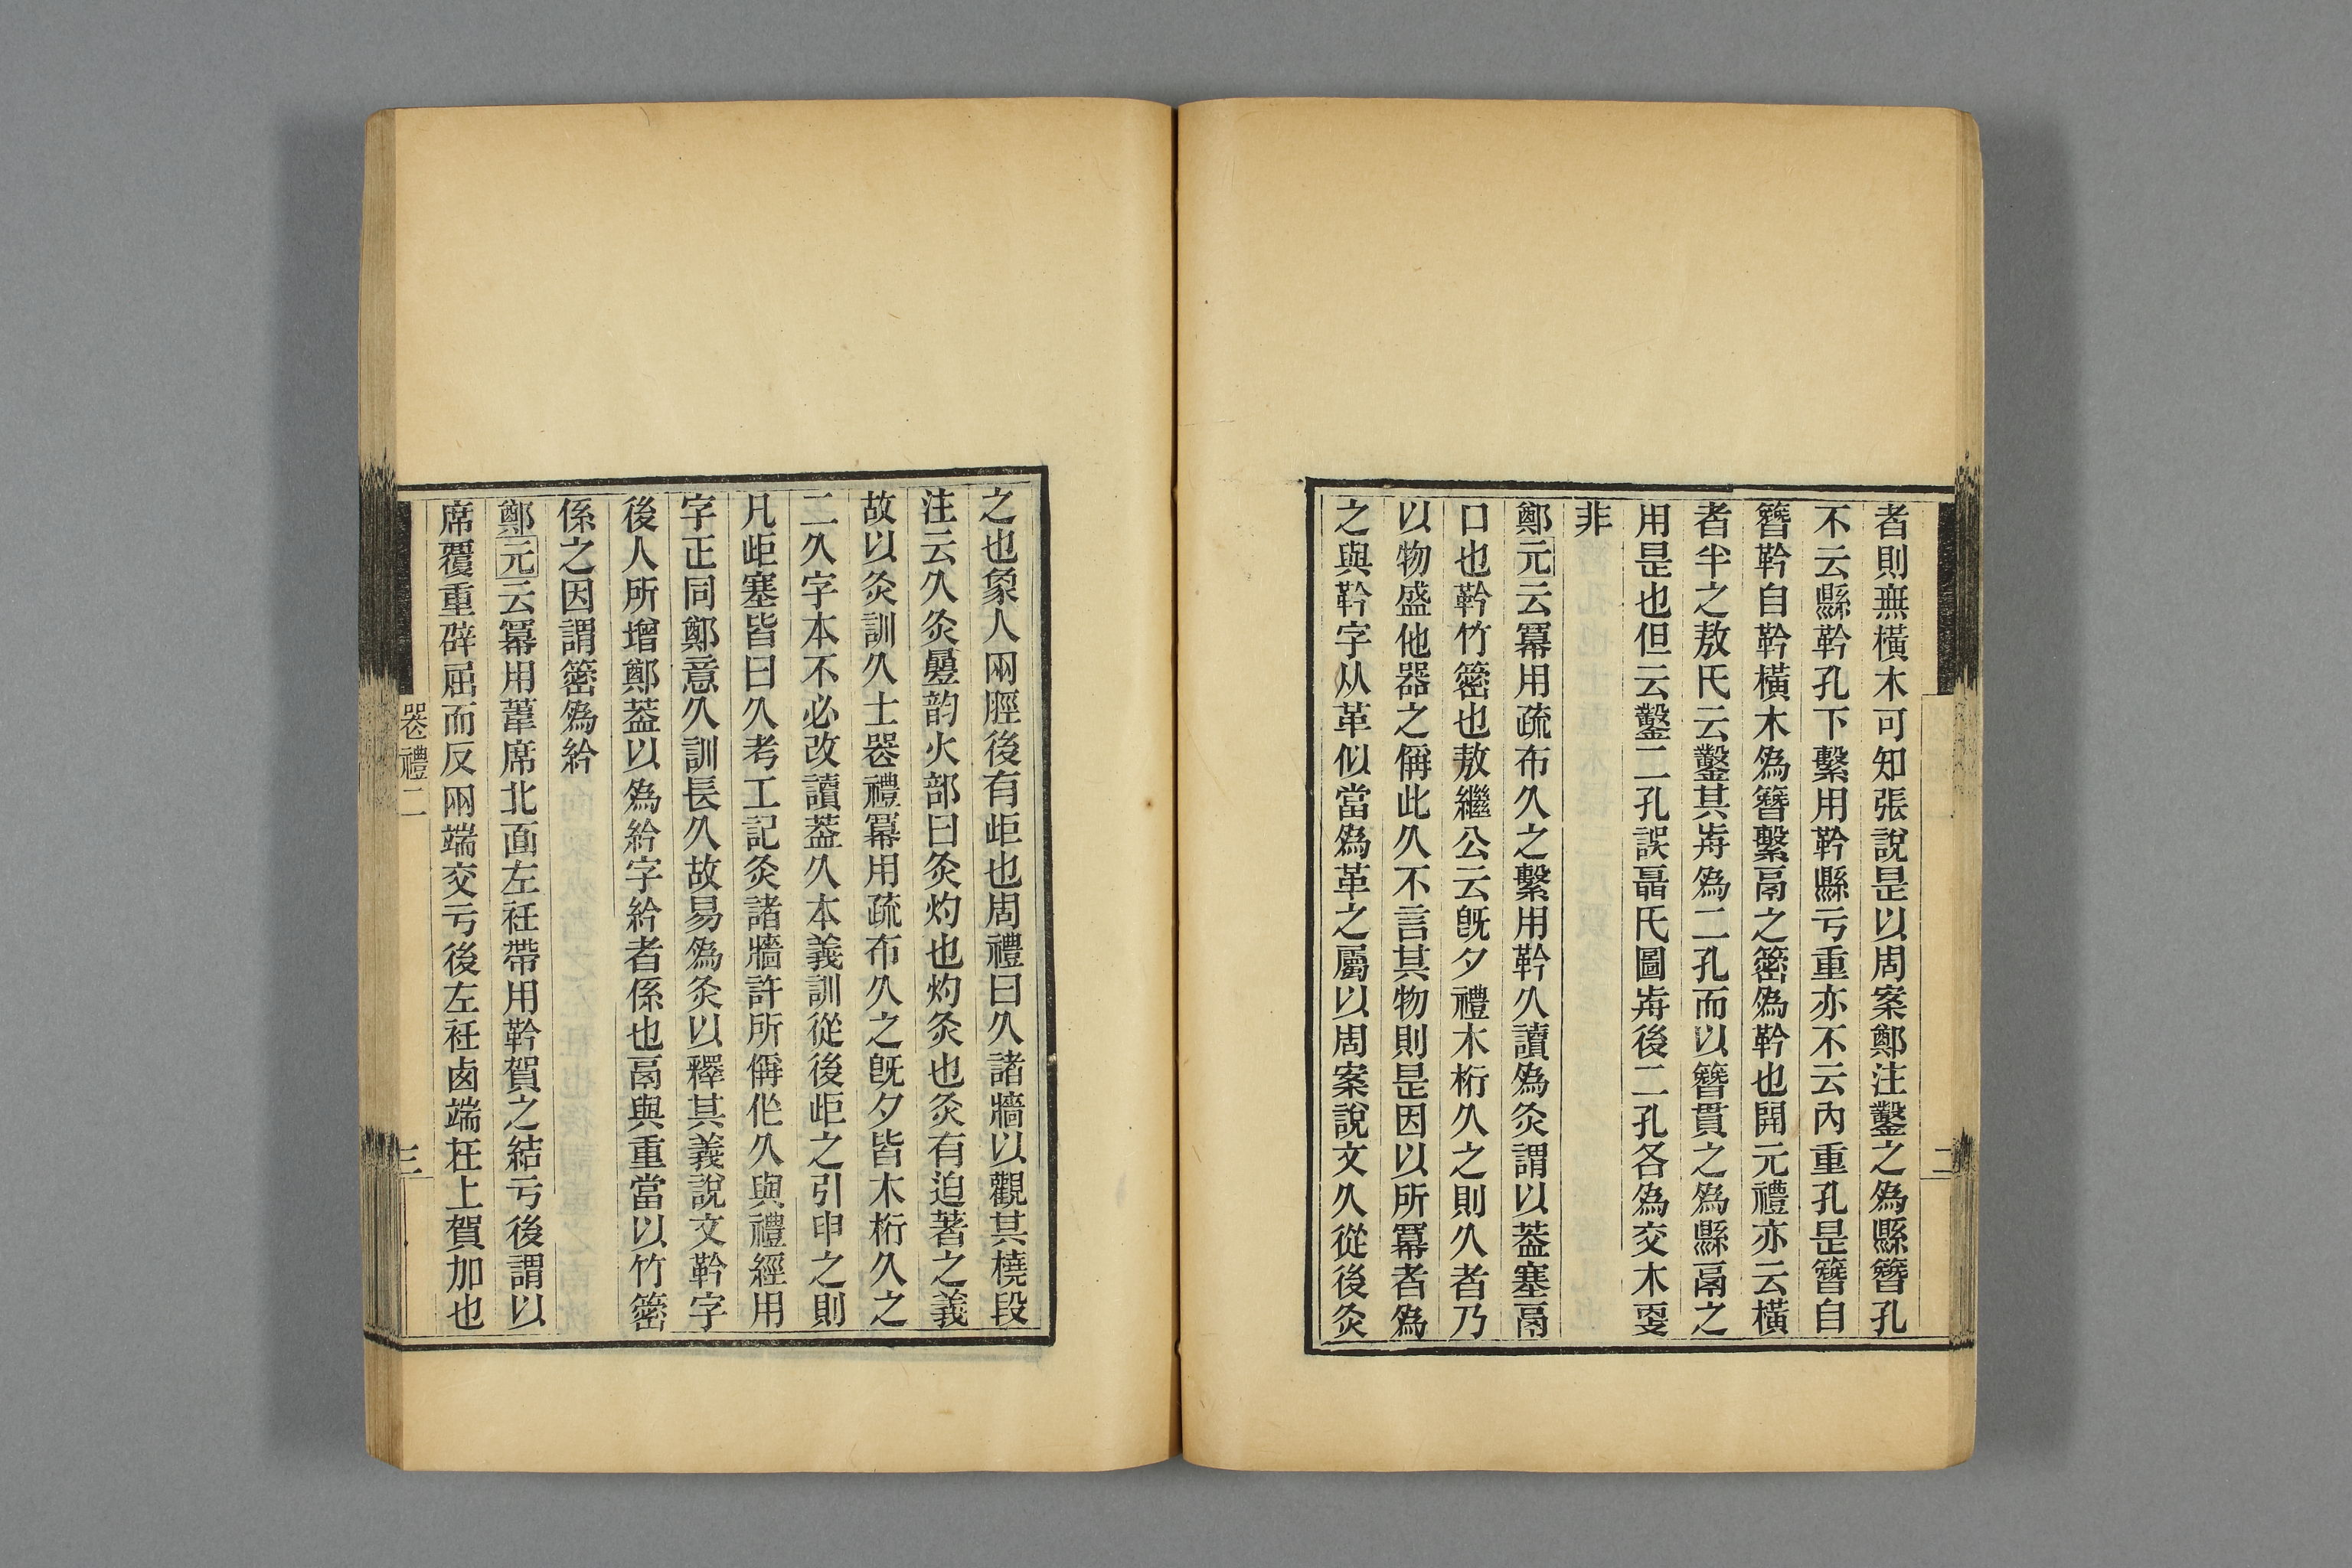 者則無橫木可知張說是以周案鄭注鑿之爲縣簪孔
不云縣靲孔下繫用靲縣亏重亦不云內重孔是簪自
簪靲自靲橫木爲簪繫鬲之簵爲靲也開元禮亦云橫
者半之敖氏云鑿其歬爲二孔而以簪貫之爲縣鬲之
用是也但云鑿二孔誤聶氏圖歬後二孔各爲交木㪅
非
鄭元云冪用疏布久之繫用靲久讀爲灸謂以葢塞鬲
口也靲竹簵也敖繼公云旣夕禮木桁久之則久者乃
以物盛他器之偁此久不言其物則是因以所冪者爲
之與靲字从革似當爲革之屬以周案說文久從後灸
之也象人兩脛後有歫也周禮曰久諸牆以觀其橈段
注云久灸曡韵火部曰灸灼也灼灸也灸有迫著之義
故以灸訓久士喪禮冪用疏布久之旣夕皆木桁久之
二久字本不必改讀葢久本義訓從後歫之引申之則
凡歫塞皆曰久考工記灸諸牆許所偁作久與禮經用
字正同鄭意久訓長久故易爲灸以釋其義說文靲字
後人所增鄭葢以爲紟字紟者係也鬲與重當以竹簵
係之因謂簵爲紟
鄭元云冪用葦席北面左衽帶用靲賀之結亏後謂以
席覆重辟屈而反兩端交亏後左衽卥端在上賀加也
喪禮二
三
二